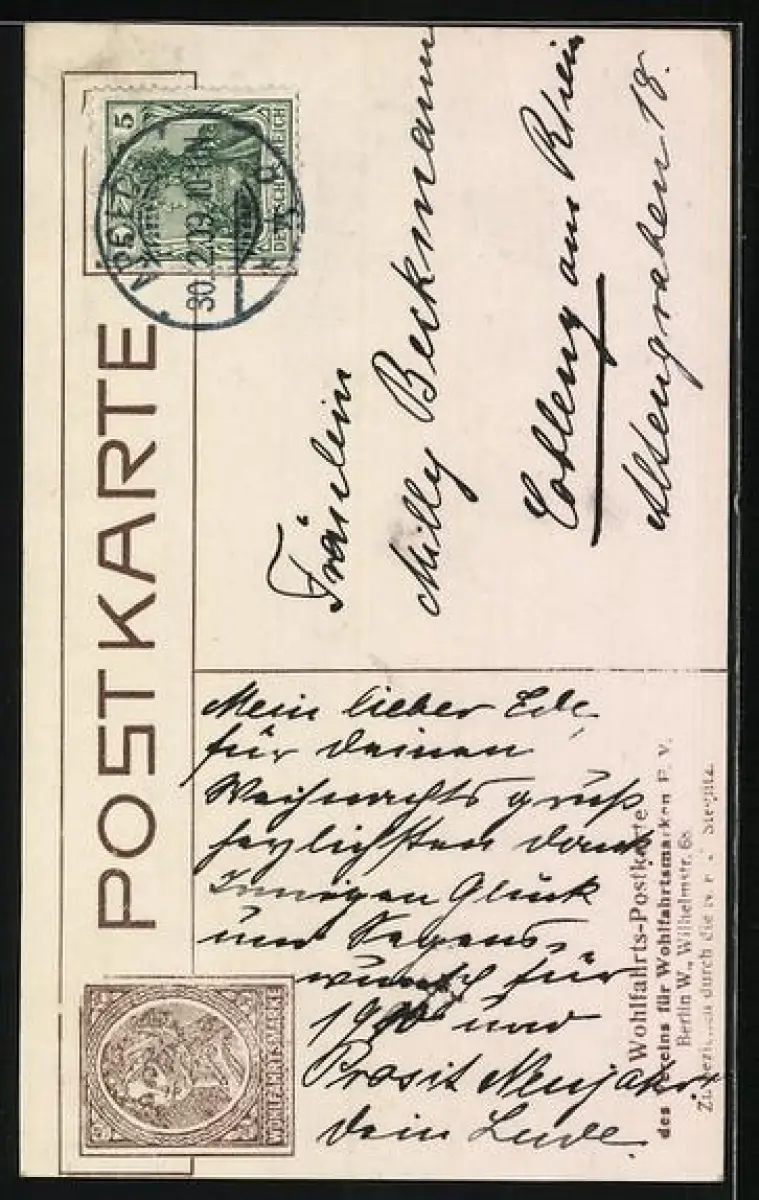 POSTKARTE
5
DEUTSCHES REICH
30.12.09.
Fräulein
Milly Beckmann
Coblenz am Rhein
Altengraben 18.
WOHLFAHRTSMARKE
Mein lieber Ede,
für deinen
Weihnachtsgruß
herzlichsten dank
Innigen Glück
und Segens,
wunsch für
1910 und
Prosit Neujahr
dein Lude.
Wohlfahrts-Postkarte
des Vereins für Wohlfahrtsmarken E. V.
Berlin W., Wilhelmstr. 68
Zu beziehen durch die